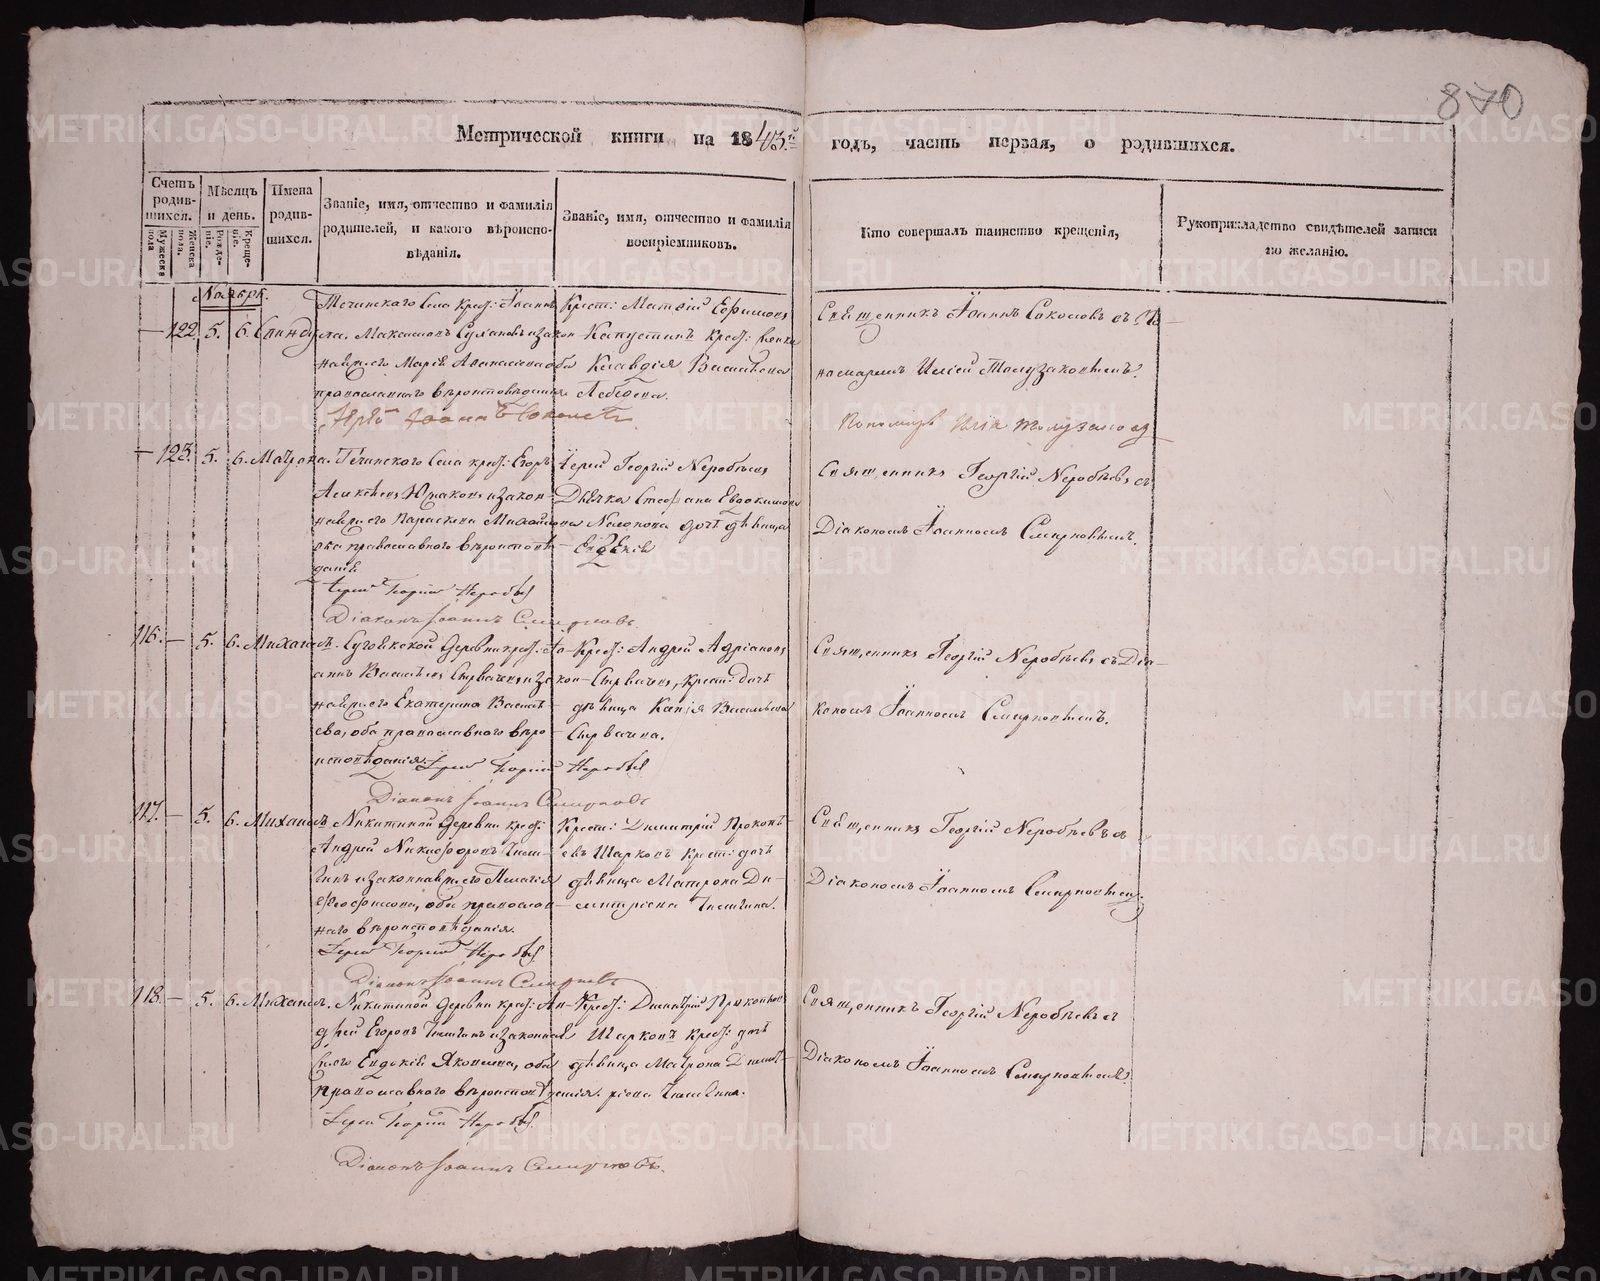 870
Метрической книги на 1843й годъ, часть первая, о родившихся.
Счетъ родив-шихся.
Мужеска пола
Женска пола.
Мѣсяцъ и день.
Рожде-нiе.
Креще-нiе.
Имена родив-шихся.
Званiе, имя, отчество и фамилiя
родителей, и какого вѣроиспо-
вѣданiя.
Званiе, имя, отчество и фамилiя
воспрiемниковъ.
Кто совершалъ таинство крещенiя,
Рукоприкладство свидѣтелей записи
по желанiю.
Ноябрь.
Течинскаго Села крест: Iоаннъ
— 122. 5. 6.
Максимовъ Сулановъ и закон
ная его Марiя Аѳанасьева оба
православнаго вѣроисповѣданiя
Iерей Iоаннъ Соколовъ
Крест: Матѳiй Ефимовъ
Капустинъ крест: жонка
Клавдiя Васильева
Лебедева.
Священникъ Iоаннъ Соколовъ съ По
номаремъ Илiей Томузаковымъ.
Пономарь Илiя
— 123. 5. 6. Матрона.
Течинскаго Села крест: Егоръ
Алексѣевъ Южаковъ и закон
ная его Параскева Михайлова
оба православнаго вѣроисповѣ
данiя
Iерей Георгiй Неробѣевъ
Дiаконъ Iоаннъ Смирновъ
Iерей Георгiй Неробѣевъ
Дьячка Стефана Евдокимова
дочь дѣвица
Евдокiя
Священникъ Георгiй Неробѣевъ съ
Дiакономъ Iоанномъ Смирновымъ.
116. — 5. 6. Михаилъ.
деревни крест:
Васильевъ Сырвачевъ и закон
ная его Екатерина Василь
ева, оба православнаго вѣро
исповѣданiя. Iерей Георгiй Неробѣевъ
Дiаконъ Iоаннъ Смирновъ
Крест: Андрей Адрiановъ
Сырвачевъ, крест: дочь
дѣвица Васильева
Сырвачева.
Священникъ Георгiй Неробѣевъ съ Дiа
кономъ Iоанномъ Смирновымъ.
117. — 5. 6. Михаилъ
Никитиной деревни крест:
Андрей Никифоровъ
и законная его Пелагiя
оба православ
наго вѣроисповѣданiя.
Iерей Георгiй Неробѣевъ
Дiаконъ Iоаннъ Смирновъ
Крест: Димитрiй Прокопь
евъ Шарковъ крест: дочь
дѣвица Матрона Ди
митрiева
Священникъ Георгiй Неробѣевъ съ
Дiакономъ Iоанномъ Смирновымъ.
118. — 5. 6. Михаилъ.
Никитиной деревни крест: Ан
дрей Егоровъ и законная
его Евдокiя Яковлева, оба
православнаго вѣроисповѣданiя.
Iерей Георгiй Неробѣевъ
Дiаконъ Iоаннъ Смирновъ.
Крест: Димитрiй Прокопьевъ
Шарковъ крест: дочь
дѣвица Матрона Димит
рiева
Священникъ Георгiй Неробѣевъ съ
Дiакономъ Iоанномъ Смирновымъ.
METRIKI.GASO-URAL.RU